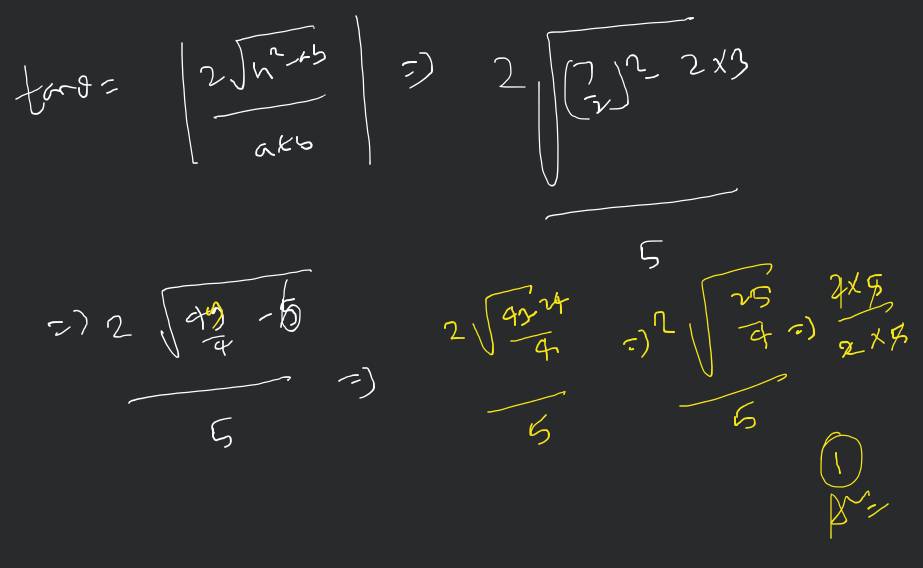 tanθ = | 2√(h²-ab) / a+b | => 2√((7/2)² - 2×3) / 5
=> 2√(49/4 - 6) / 5 => 2√(49-24 / 4) / 5 => 2√(25/4) / 5 => 2×5 / 2×5
1